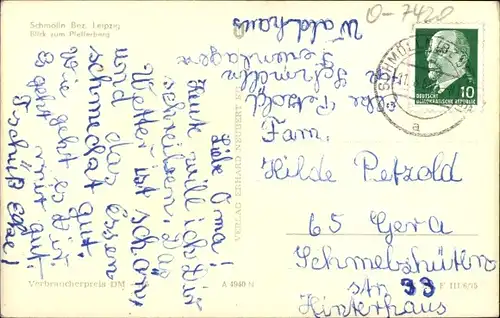 Schmölln Bez. Leipzig
Blick zum Pfefferberg
O-7420
Waldhaus
Ferienlager
Schmölln
Liebe Oma!
Heute will ich Dir
schreiben. Das
Wetter ist schön
und das Essen
schmeckt gut.
Wie geht es Dir
Es geht mir gut.
Tschüß
VERLAG ERHARD NEUBERT
SCHMÖLLN
a
DEUTSCHE
DEMOKRATISCHE REPUBLIK
10
Fam.
Hilde Petzold
65 Gera
Schmelzhütten
str. 33
Hinterhaus
Verbraucherpreis DM
A 4940 N